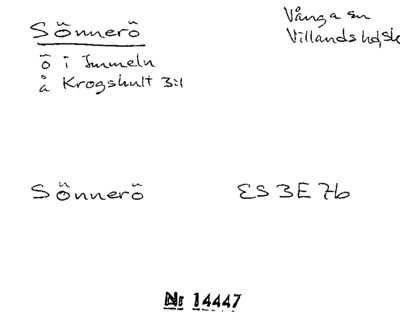 Sönnerö
Vånga sn
Villands hd, sk
ö i Immeln
å Krogshult 3:1
Sönnerö
ES 3E 7b
Nr 14447